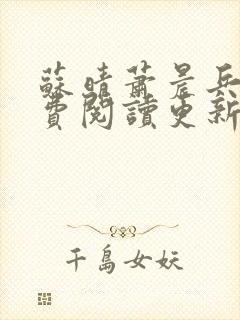 蘇晴蕭晨兵
費閱讀更新
千島女妖